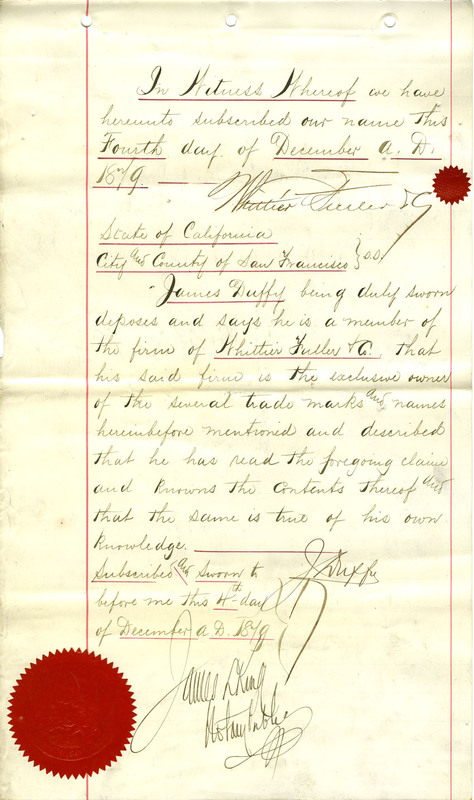 In Witness Whereof we have
hereunto subscribed our name this
Fourth day of December A.D.
1879.
Whittier Fuller & Co
State of California
City and County of San Francisco } S.S.
James Duffy being duly sworn
deposes and says he is a member of
the firm of Whittier Fuller & Co. that
his said firm is the exclusive owner
of the several trade marks and names
hereinbefore mentioned and described
that he has read the foregoing claim
and knowns the contents thereof and
that the same is true of his own
knowledge.
J Duffy
Subscribed and Sworn to
before me this 4th day
of December A.D. 1879
James L King
Notary Public